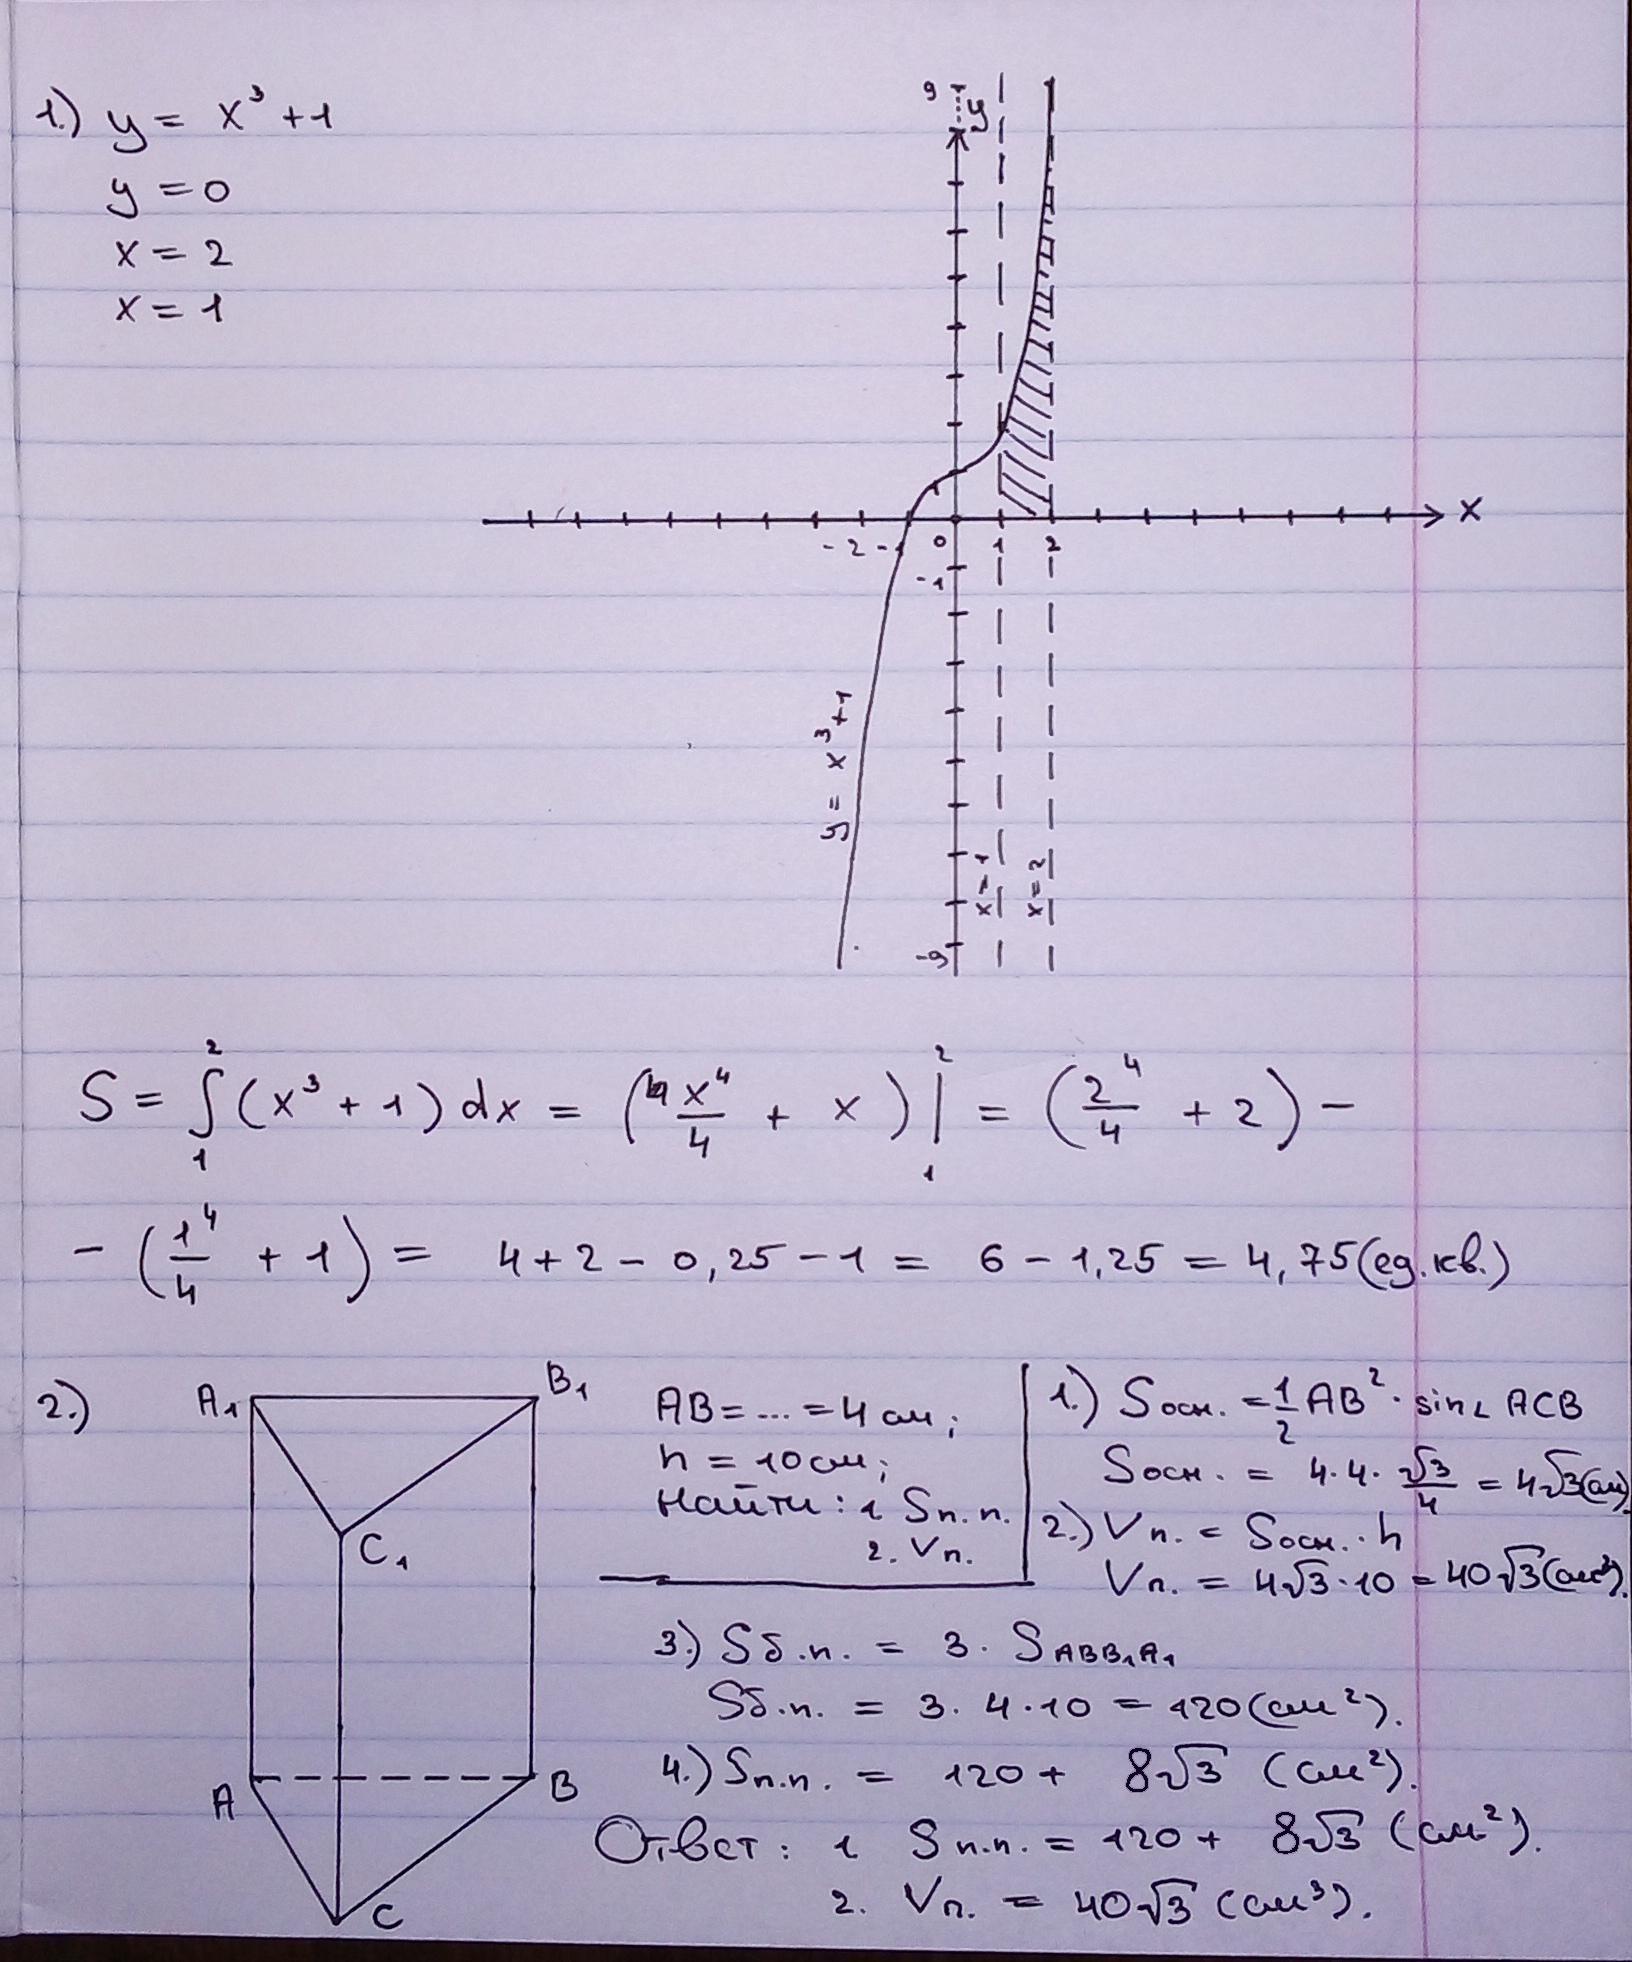 1.) y = x³ + 1
y = 0
x = 2
x = 1
9
y
x
-2 -1 0 1 2
1
-1
y = x³ + 1
x = 1
x = 2
-9
S = ∫₁² (x³ + 1) dx = (x⁴/4 + x) |₁² = (2⁴/4 + 2) -
- (1⁴/4 + 1) = 4 + 2 - 0,25 - 1 = 6 - 1,25 = 4,75 (ед. кв.)
2.)
A₁
B₁
C₁
A
B
C
AB = ... = 4 см;
h = 10 см;
Найти: 1 Sп.п.
2. Vп.
1.) Sосн. = 1/2 AB² · sin∠ ACB
Sосн. = 4·4· √3/4 = 4√3 (см).
2.) Vп. = Sосн. · h
Vп. = 4√3 · 10 = 40√3 (см³).
3.) Sб.п. = 3 · SABB₁A₁
Sб.п. = 3 · 4 · 10 = 120 (см²).
4.) Sп.п. = 120 + 8√3 (см²).
Ответ: 1 Sп.п. = 120 + 8√3 (см²).
2. Vп. = 40√3 (см³).